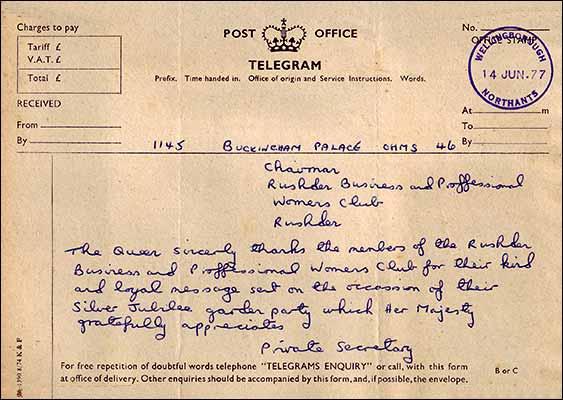 Charges to pay
Tariff £
V.A.T. £
Total £
RECEIVED
From
By
POST OFFICE
TELEGRAM
Prefix. Time handed in. Office of origin and Service Instructions. Words.
No.
OFFICE STAMP
WELLINGBOROUGH
14 JUN. 77
NORTHANTS
At m
To
By
1145 BUCKINGHAM PALACE OHMS 46
Chairman
Rushden Business and Proffessional
Womens Club
Rushden
The Queen sincerly thanks the members of the Rushden
Business and Proffessional Womens Club for their kind
and loyal message sent on the occassion of their
Silver Jubilee garden party which Her Majesty
gratefully appreciates
Private Secretary
For free repetition of doubtful words telephone "TELEGRAMS ENQUIRY" or call, with this form
at office of delivery. Other enquiries should be accompanied by this form, and, if possible, the envelope.
B or C
8/74 K & P